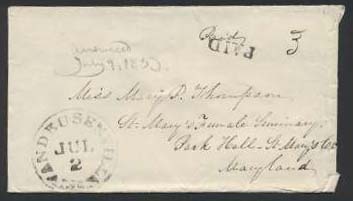 Paid
PAID
3
answered
July 9, 1853
Miss Mary P. Thompson
St. Mary's Female Seminary
Park Hall - St. Mary's Co
Maryland
JUL
2